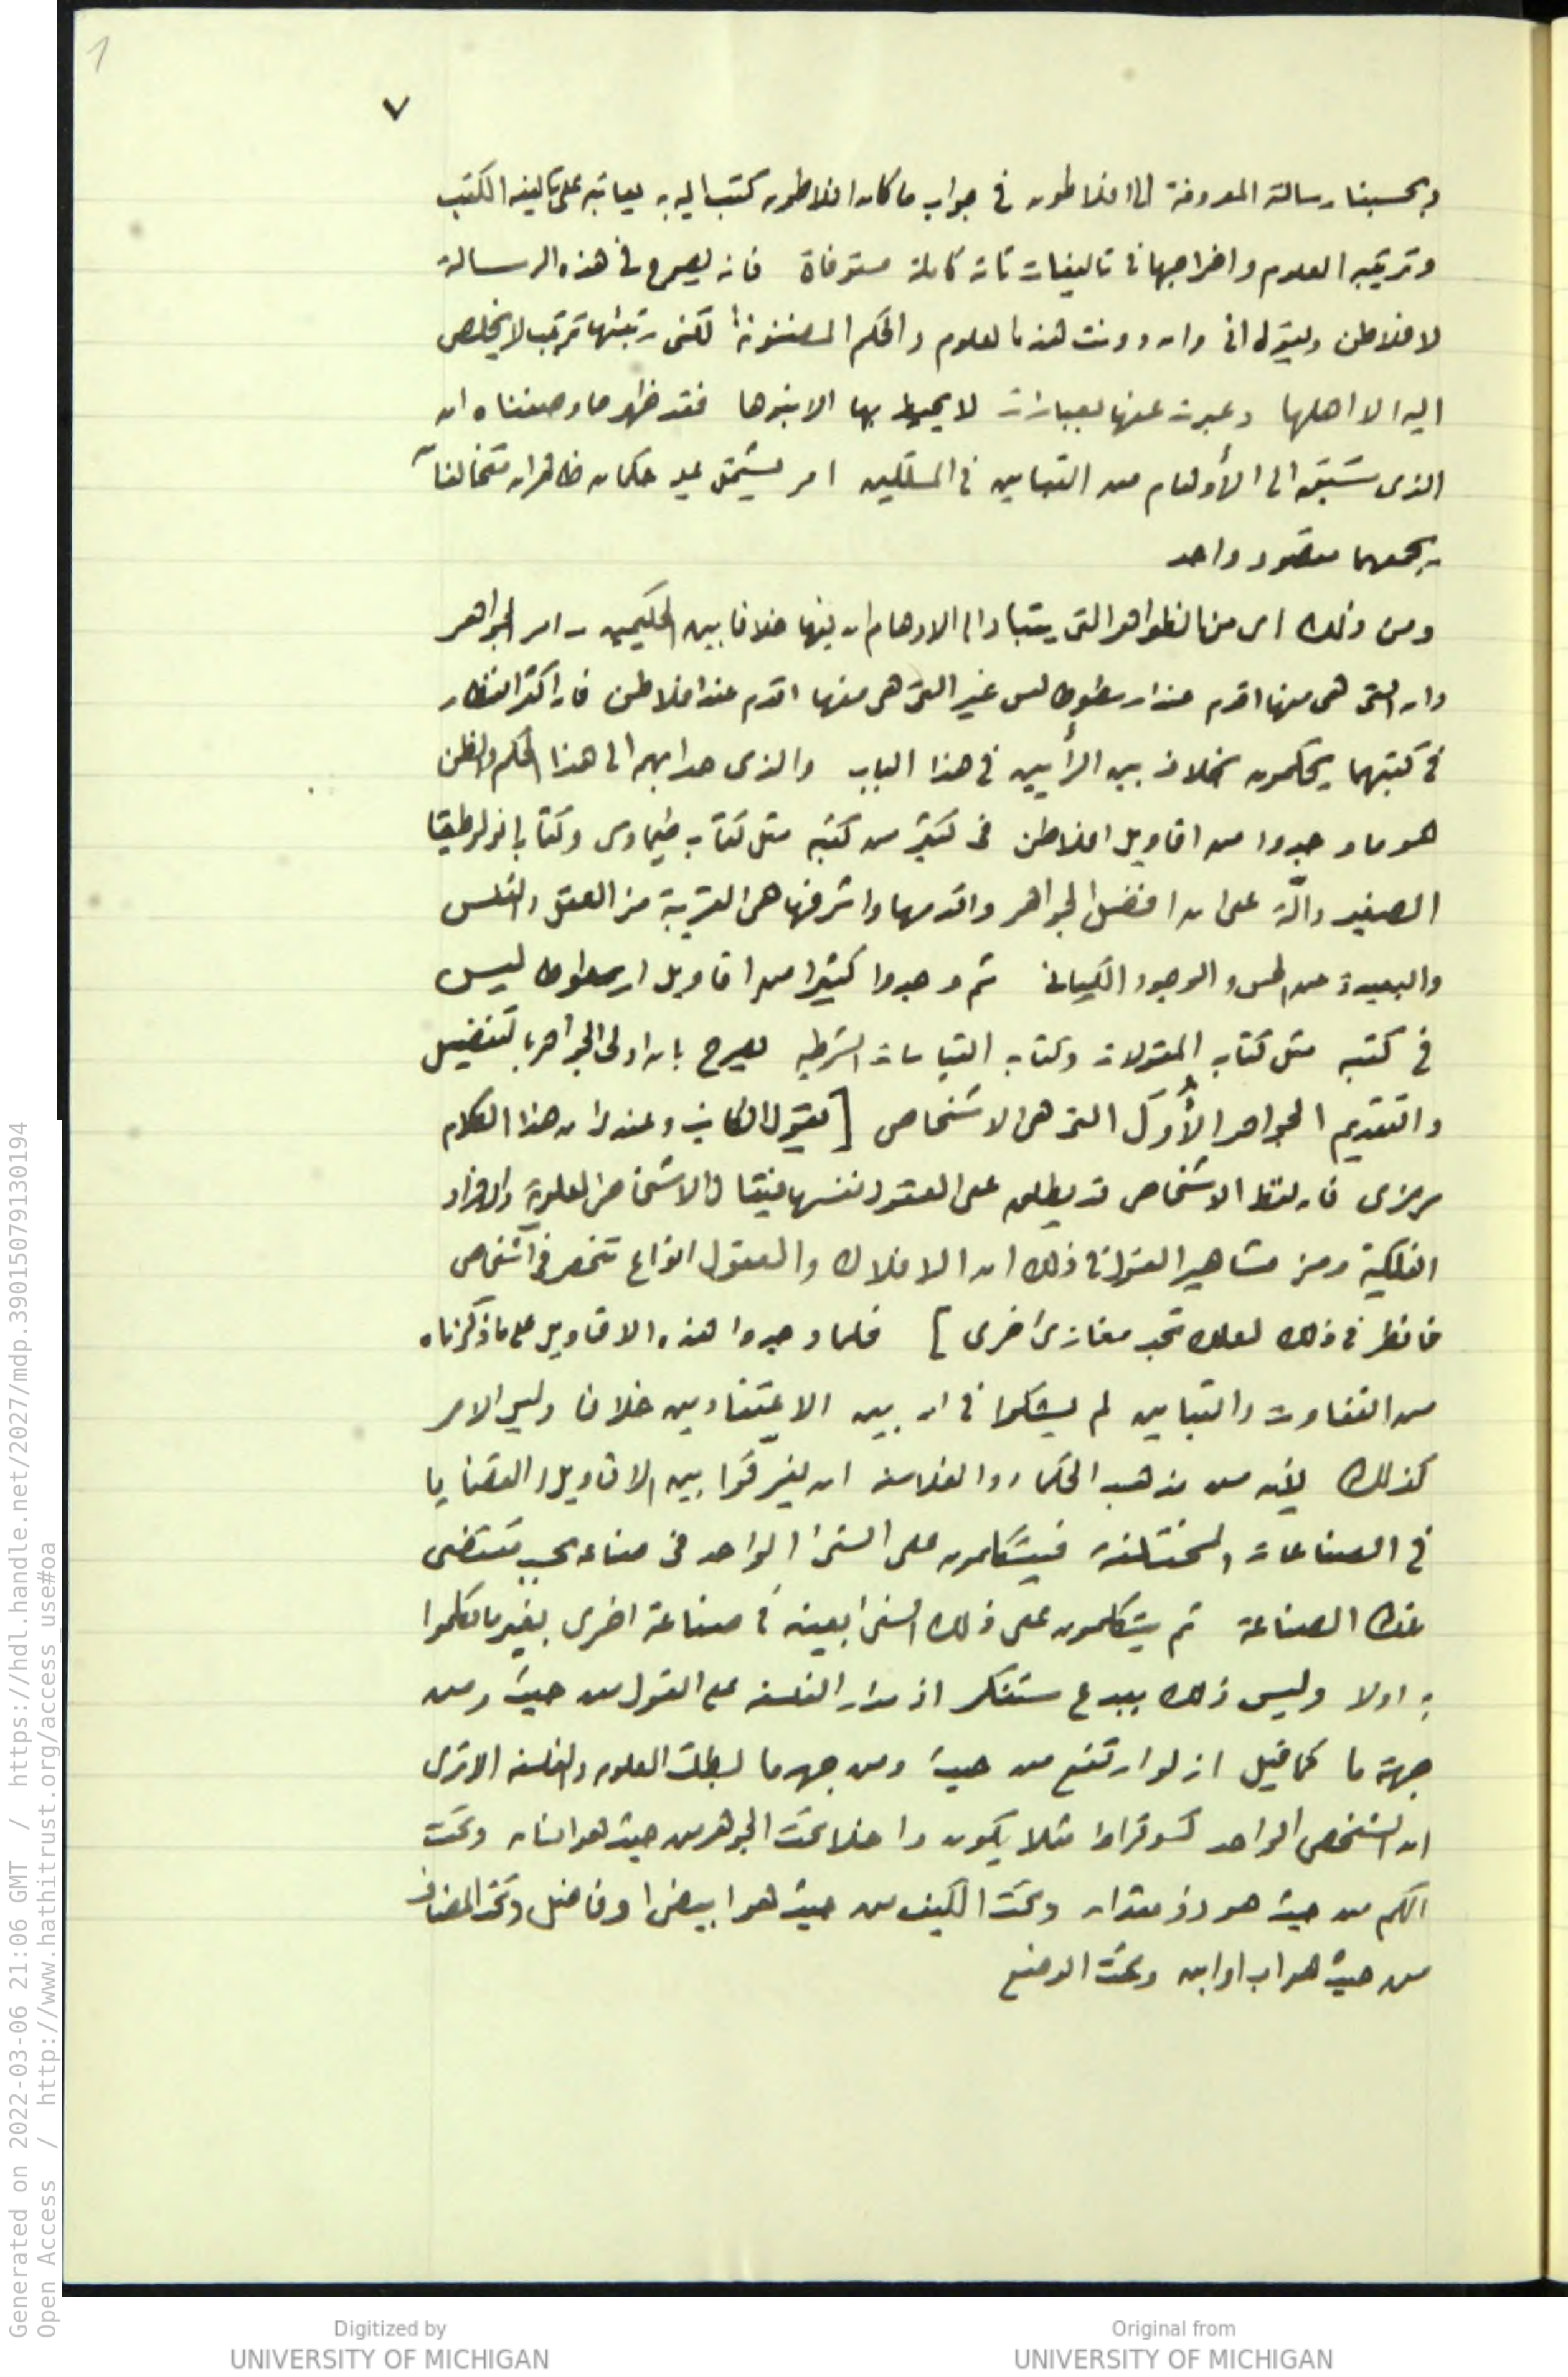 1
٧
وبحسبنا رسالة المعروفة الى افلاطون فى جواب ما كان افلاطون كتب اليه به يعاتبه على تاليفه الكتب
وترتيبه العلوم واخراجها فى تاليفات تامة كاملة مستوفاة فانه يصرح فى هذه الرسالة
لافلاطن ويقول انى وان دونت هذه العلوم والحكم المضنونة لكنى رتبتها ترتيبا لا يخلص
اليه الا اهلها وعبرت عنها بعبارات لا يحيط بها الا بنوها فقد ظهر مما وصفناه ان
الذى سَبَق الى الأوهام من التباين فى المسلكين امر يشتمل عليه حكمان ظاهران متخالفان
يجمعهما مقصود واحد
ومن ذلك اى من الظواهر التى يتبادر الى الاوهام ان فيها خلافا بين الحكيمين ـ امر الجواهر
وان التى هى منها اقدم عند ارسطوطاليس غير التى هى منها اقدم عند افلاطن فان اكثر النظار
فى كتبهما يحكمون بخلاف بين الرأيين فى هذا الباب والذى حدا بهم الى هذا الحكم والظن
هو ما وجدوا من اقاويل افلاطن فى كثير من كتبه مثل كتاب طيماوس وكتاب بولوطيقا
الصغير دالّة على ان افضل الجواهر واقدمها واشرفها هى القريبة من العقل والنفس
والبعيدة عن الحس والوجود الكيانى ثم وجدوا كثيرا من اقاويل ارسطوطاليس
فى كتبه مثل كتاب المقولات وكتاب القياسات الشرطيه يصرح بان اولى الجواهر بالتفضيل
والتقديم الجواهر الأُوَل التى هى الاشخاص [ يقول الكاتب وعندى ان هذا الكلام
مرمزى فان لفظ الاشخاص قد يطلق على العقول نفسها فيقال الاشخاص العلوية والافراد
الفلكية ومن مشاهير القول فى ذلك ان الافلاك والعقول انواع تنحصر فى اشخاص
فانظر فى ذلك لعلك تجد مغازى اخرى ] فلما وجدوا هذه الاقاويل على ما ذكرناه
من التفاوت والتباين لم يشكوا فى ان بين الاعتقادين خلافا وليس الامر
كذلك لأنه من مذهب الحكماء والفلاسفة ان يفرّقوا بين الاقاويل والقضايا
فى الصناعات المختلفة فيتكلمون على الشئ الواحد فى صناعه بحسب مقتضى
تلك الصناعة ثم يتكلمون على ذلك الشئ بعينه فى صناعة اخرى بغير ما تكلموا
به اولا وليس ذلك ببدع مستنكر اذ مدار الفلسفه على القول من حيث ومن
جهة ما كما قيل انه لو ارتفع من حيث ومن جهه ما لبطلت العلوم والفلسفه الا ترى
ان الشخص الواحد كسوقراط مثلا يكون داخلا تحت الجوهر من حيث هو انسان وتحت
الكم من حيث هو ذو مقدار وتحت الكيف من حيث هو ابيض او فاضل وتحت المضاف
من حيث هو اب او ابن وتحت الوضع
Generated on 2022-03-06 21:06 GMT / https://hdl.handle.net/2027/mdp.39015079130194
Open Access / http://www.hathitrust.org/access_use#oa
Digitized by
UNIVERSITY OF MICHIGAN
Original from
UNIVERSITY OF MICHIGAN